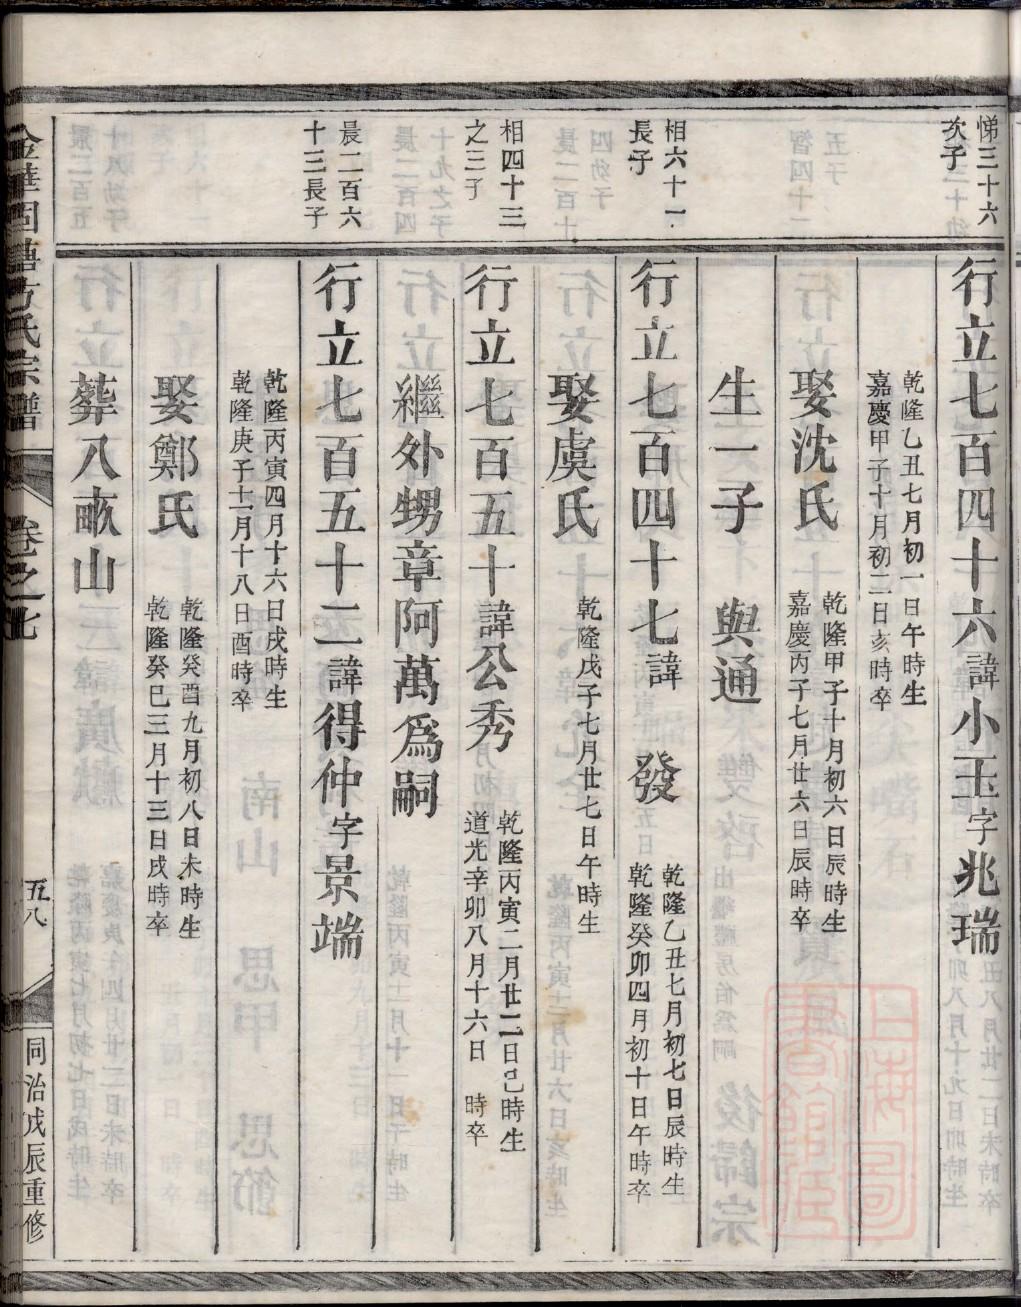 悌三十六
次子
行立七百四十六諱小玉字兆瑞
乾隆乙丑七月初一日午時生
嘉慶甲子十月初二日亥時卒
娶沈氏
乾隆甲子十月初六日辰時生
嘉慶丙子七月廿六日辰時卒
生一子 與通
相六十一
長子
行立七百四十七諱 發
乾隆乙丑七月初七日辰時生
乾隆癸卯四月初十日午時卒
娶虞氏
乾隆戊子七月廿七日午時生
相四十三
之三子
行立七百五十諱公秀
乾隆丙寅二月廿二日巳時生
道光辛卯八月十六日 時卒
繼外甥章阿萬爲嗣
晨二百六
十三長子
行立七百五十二諱得仲字景端
乾隆丙寅四月十六日戌時生
乾隆庚子十一月十八日酉時卒
娶鄭氏
乾隆癸酉九月初八日未時生
乾隆癸巳三月十三日戌時卒
葬八畝山
金華固塘方氏宗譜
卷之七
五八
同治戊辰重修
上海圖書館藏